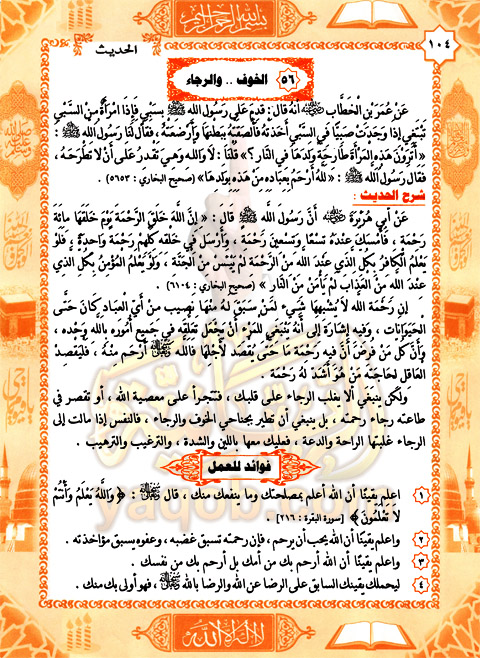 بسم الله الرحمن الرحيم
١٠٤
الحديث
٥٦ الخوف .. والرجاء
عَنْ عُمَرَ بْنِ الْخَطَّابِ ﷺ أنَّهُ قَالَ : قَدِمَ عَلَى رَسُولِ اللهِ ﷺ بِسَبْيٍ فَإِذَا امْرَأَةٌ مِنَ السَّبْيِ
تَبْتَغِي إِذَا وَجَدَتْ صَبِيًّا فِي السَّبْيِ أَخَذَتْهُ فَأَلْصَقَتْهُ بِبَطْنِهَا وَأَرْضَعَتْهُ ، فَقَالَ لَنَا رَسُولُ اللهِ ﷺ :
« أَتَرَوْنَ هَذِهِ الْمَرْأَةَ طَارِحَةً وَلَدَهَا فِي النَّارِ ؟ » قُلْنَا : لاَ وَاللهِ وَهِيَ تَقْدِرُ عَلَى أَنْ لاَ تَطْرَحَهُ ،
فَقَالَ رَسُولُ اللهِ ﷺ : « للهُ أَرْحَمُ بِعِبَادِهِ مِنْ هَذِهِ بِوَلَدِهَا » (صحيح البخاري : ٥٦٥٣) .
شرح الحديث :
عَنْ أَبِي هُرَيْرَةَ ﷺ أَنَّ رَسُولَ اللهِ ﷺ قَالَ : « إِنَّ اللهَ خَلَقَ الرَّحْمَةَ يَوْمَ خَلَقَهَا مِائَةَ
رَحْمَةٍ ، فَأَمْسَكَ عِنْدَهُ تِسْعًا وَتِسْعِينَ رَحْمَةً ، وَأَرْسَلَ فِي خَلْقِهِ كُلِّهِمْ رَحْمَةً وَاحِدَةً ، فَلَوْ
يَعْلَمُ الْكَافِرُ بِكُلِّ الَّذِي عِنْدَ اللهِ مِنَ الرَّحْمَةِ لَمْ يَيْئَسْ مِنَ الْجَنَّةِ ، وَلَوْ يَعْلَمُ الْمُؤْمِنُ بِكُلِّ الَّذِي
عِنْدَ اللهِ مِنَ الْعَذَابِ لَمْ يَأْمَنْ مِنَ النَّارِ » (صحيح البخاري : ٦١٠٤) .
إن رَحْمَةَ اللهِ لاَ يُشْبِهُهَا شَيْءٌ لِمَنْ سَبَقَ لَهُ مِنْهَا نَصِيبٌ مِنْ أَيِّ الْعِبَادِ كَانَ حَتَّى
الْحَيَوَانَاتِ ، وَفِيهِ إِشَارَةٌ إِلَى أَنَّهُ يَنْبَغِي لِلْمَرْءِ أَنْ يَجْعَلَ تَعَلُّقَهُ فِي جَمِيعِ أُمُورِهِ بِاللهِ وَحْدَهُ ،
وَأَنَّ كُلَّ مَنْ فُرِضَ أَنَّ فِيهِ رَحْمَةً مَا حَتَّى يُقْصَدَ لأَجْلِهَا فَاللهُ أَرْحَمُ مِنْهُ ، فَلْيَقْصِدِ
الْعَاقِلُ لِحَاجَتِهِ مَنْ هُوَ أَشَدُّ لَهُ رَحْمَةً .
ولكن ينبغي ألا يغلب الرجاء على قلبك ، فتتجرأ على معصية الله ، أو تقصر في
طاعته رجاء رحمته ، بل ينبغي أن تطير بجناحي الخوف والرجاء ، فالنفس إذا مالت إلى
الرجاء غلبتها الراحة والدعة ، فعليك معها باللين والشدة ، والترغيب والترهيب .
فوائد للعمل
١ اعلم يقينًا أن الله أعلم بمصلحتك وما ينفعك منك ، قال : ﴿ وَاللَّهُ يَعْلَمُ وَأَنْتُمْ
لَا تَعْلَمُونَ ﴾ [سورة البقرة : ٢١٦] .
٢ واعلم يقينًا أن الله يحب أن يرحم ، فإن رحمته تسبق غضبه ، وعفوه يسبق مؤاخذته .
٣ واعلم يقينًا أن الله أرحم بك من أمك بل أرحم بك من نفسك .
٤ ليحملك يقينك السابق على الرضا عن الله والرضا بالله ، فهو أولى بك منك .
yaqob.com
لا إله إلا الله